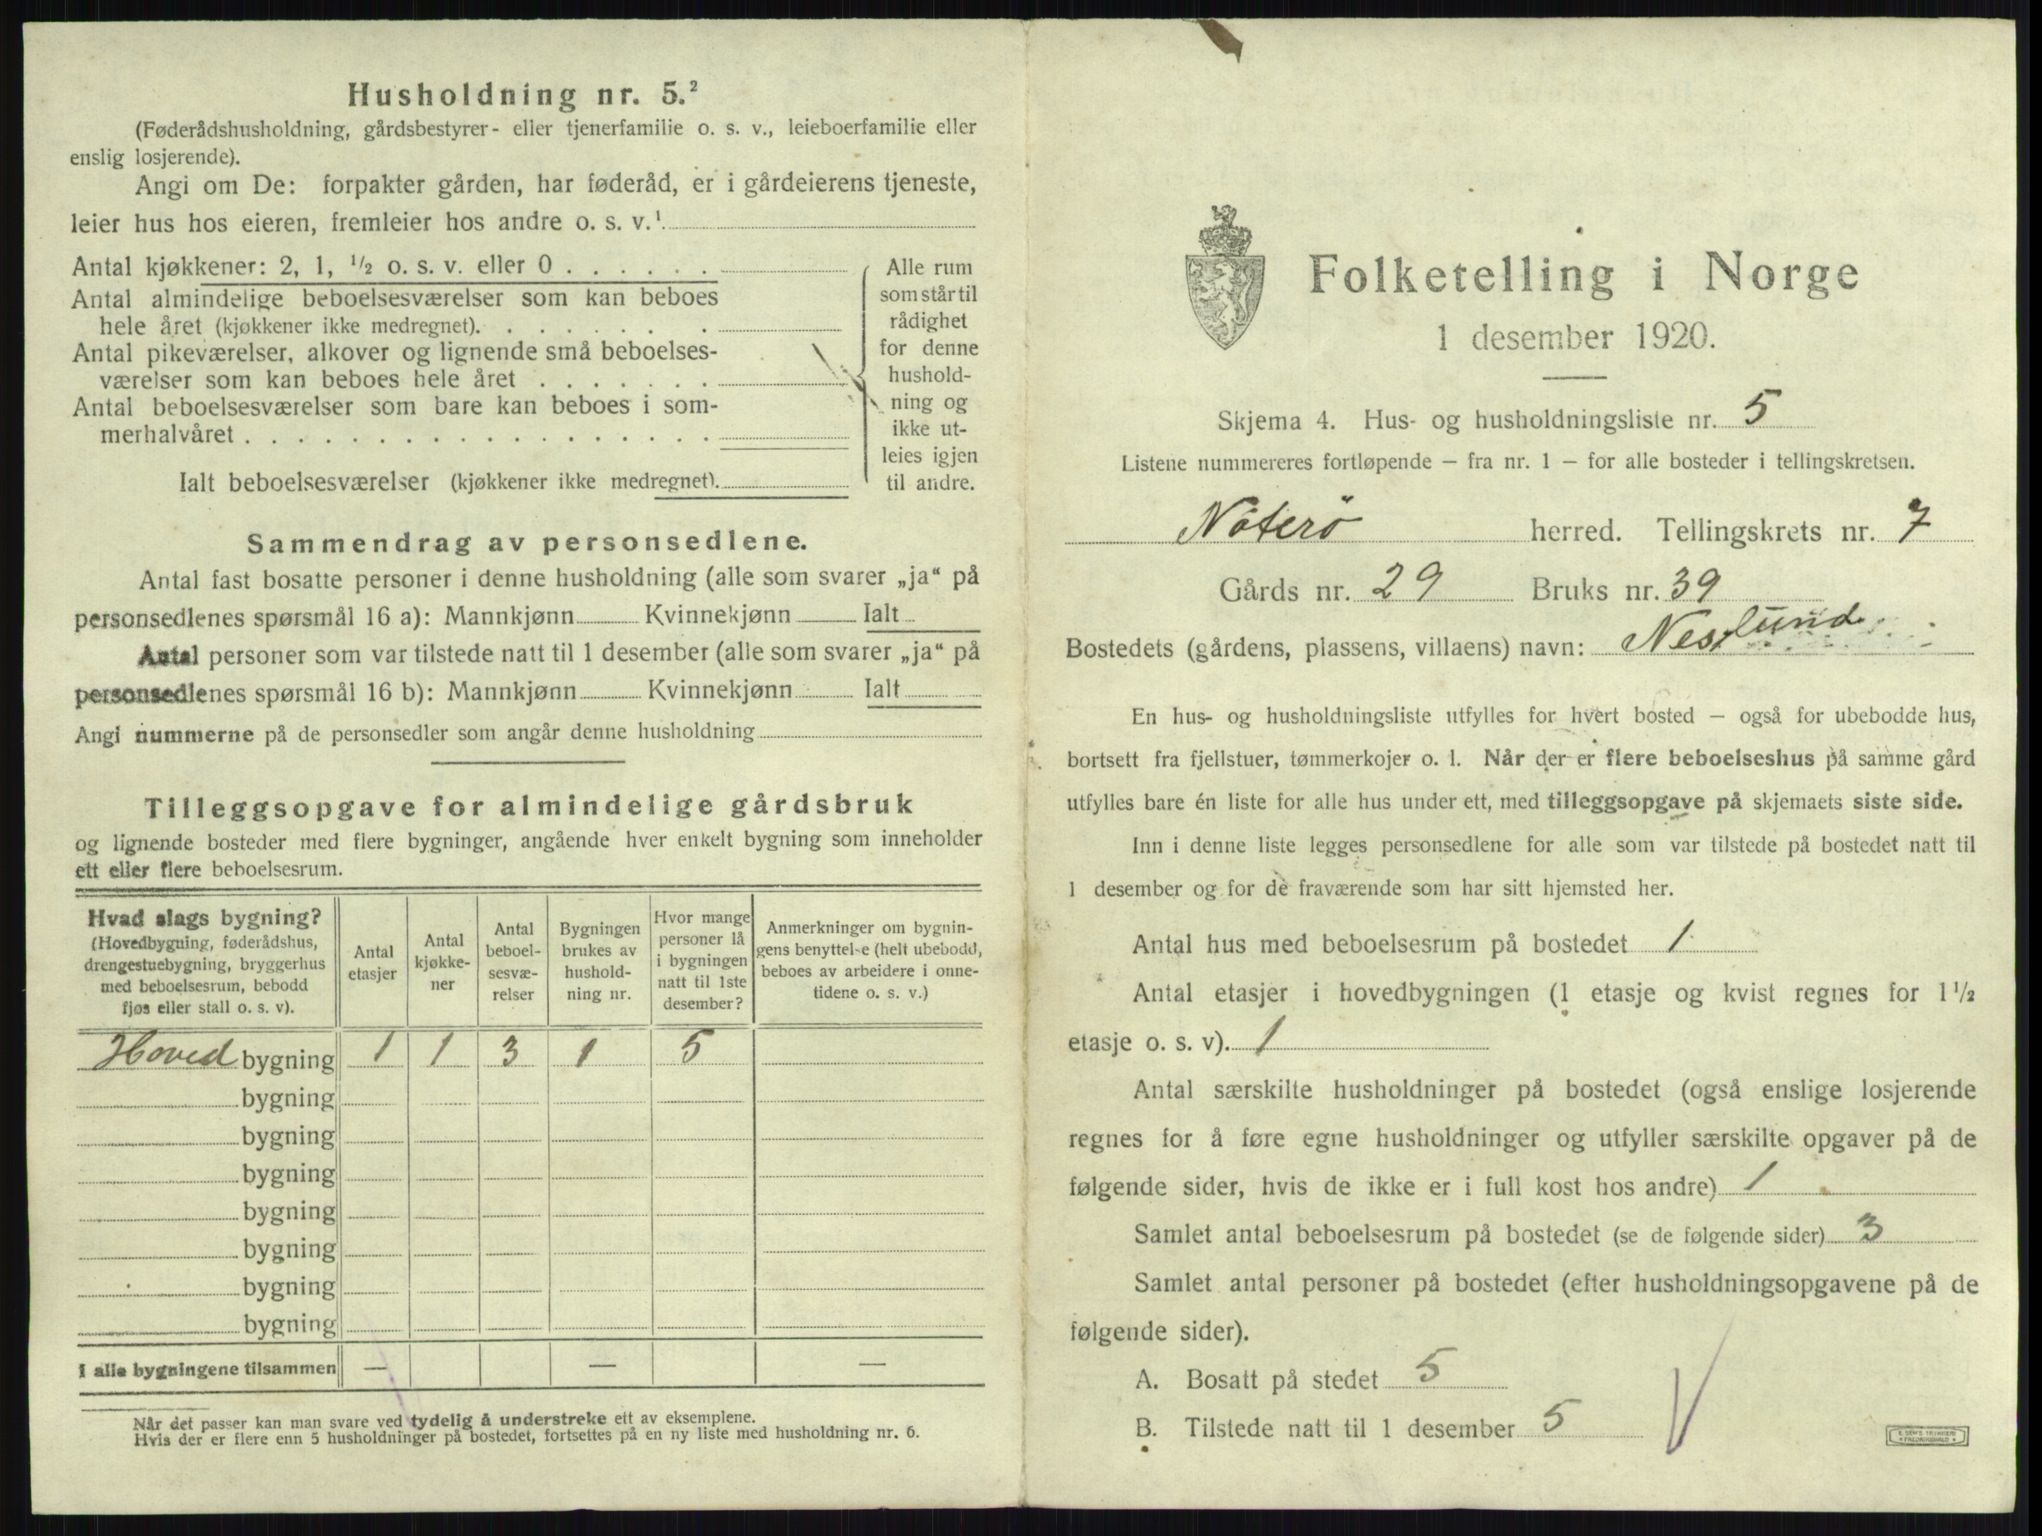 Husholdning nr. 5.²
(Føderådshusholdning, gårdsbestyrer- eller tjenerfamilie o. s. v., leieboerfamilie eller
enslig losjerende).
Angi om De: forpakter gården, har føderåd, er i gårdeierens tjeneste,
leier hus hos eieren, fremleier hos andre o. s. v.¹
Antal kjøkkener: 2, 1, ½ o. s. v. eller 0 . . . . . .
Antal almindelige beboelsesværelser som kan beboes
hele året (kjøkkener ikke medregnet). . . . . . . .
Antal pikeværelser, alkover og lignende små beboelses-
værelser som kan beboes hele året . . . . . . .
Antal beboelsesværelser som bare kan beboes i som-
merhalvåret . . . . . . . . . . . . . . . . . .
Ialt beboelsesværelser (kjøkkener ikke medregnet).
Alle rum
som står til
rådighet
for denne
hushold-
ning og
ikke ut-
leies igjen
til andre.
Sammendrag av personsedlene.
Antal fast bosatte personer i denne husholdning (alle som svarer „ja“ på
personsedlenes spørsmål 16 a): Mannkjønn Kvinnekjønn Ialt
Antal personer som var tilstede natt til 1 desember (alle som svarer „ja“ på
personsedlenes spørsmål 16 b): Mannkjønn Kvinnekjønn Ialt
Angi nummerne på de personsedler som angår denne husholdning
Tilleggsopgave for almindelige gårdsbruk
og lignende bosteder med flere bygninger, angående hver enkelt bygning som inneholder
ett eller flere beboelsesrum.
Hvad slags bygning?
(Hovedbygning, føderådshus,
drengestuebygning, bryggerhus
med beboelsesrum, bebodd
fjøs eller stall o. s. v).
Antal
etasjer
Antal
kjøkke-
ner
Antal
beboel-
sesvæ-
relser
Bygningen
brukes av
hushold-
ning nr.
Hvor mange
personer lå
i bygningen
natt til 1ste
desember?
Anmerkninger om bygnin-
gens benyttelse (helt ubebodd,
beboes av arbeidere i onne-
tidene o. s. v.)
Hoved bygning 1 1 3 1 5
bygning
bygning
bygning
bygning
bygning
bygning
bygning
I alle bygningene tilsammen — — —
Når det passer kan man svare ved tydelig å understreke ett av eksemplene.
Hvis der er flere enn 5 husholdninger på bostedet, fortsettes på en ny liste med husholdning nr. 6.
Folketelling i Norge
1 desember 1920.
Skjema 4. Hus- og husholdningsliste nr. 5
Listene nummereres fortløpende — fra nr. 1 — for alle bosteder i tellingskretsen.
Nöterö herred. Tellingskrets nr. 7
Gårds nr. 29 Bruks nr. 39
Bostedets (gårdens, plassens, villaens) navn: Neslund
En hus- og husholdningsliste utfylles for hvert bosted — også for ubebodde hus,
bortsett fra fjellstuer, tømmerkojer o. l. Når der er flere beboelseshus på samme gård
utfylles bare én liste for alle hus under ett, med tilleggsopgave på skjemaets siste side.
Inn i denne liste legges personsedlene for alle som var tilstede på bostedet natt til
1 desember og for de fraværende som har sitt hjemsted her.
Antal hus med beboelsesrum på bostedet 1
Antal etasjer i hovedbygningen (1 etasje og kvist regnes for 1½
etasje o. s. v). 1
Antal særskilte husholdninger på bostedet (også enslige losjerende
regnes for å føre egne husholdninger og utfyller særskilte opgaver på de
følgende sider, hvis de ikke er i full kost hos andre) 1
Samlet antal beboelsesrum på bostedet (se de følgende sider) 3
Samlet antal personer på bostedet (efter husholdningsopgavene på de
følgende sider).
A. Bosatt på stedet 5
B. Tilstede natt til 1 desember 5